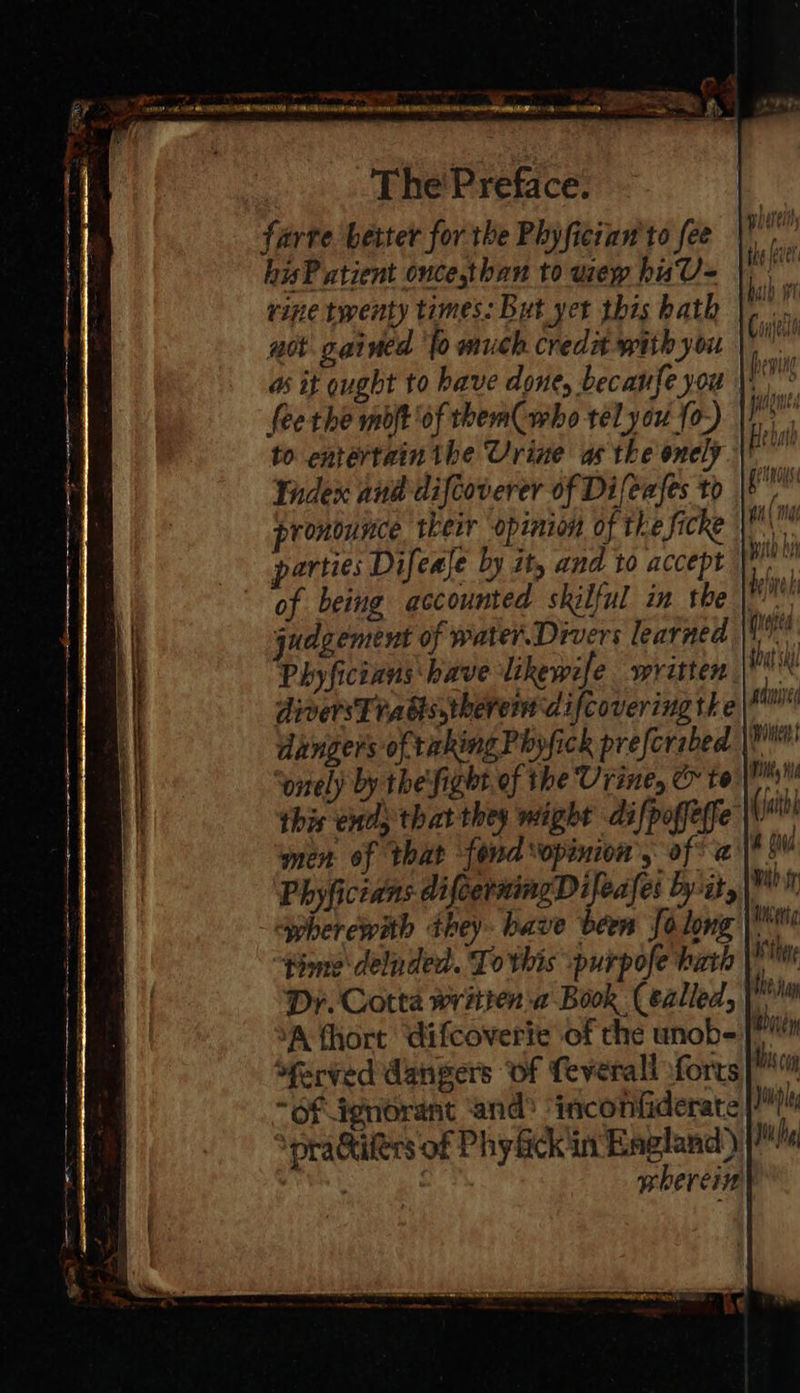 The Preface.
farre better for the Phyſician to ſee
his Patient once, than to view his U-
rine twenty times: But yet this hath
not gained ſo much credit with you
as it ought to have done, becauſe you
ſee the moſt of them (who tel you ſo)
to entertain the Urine as the onely
Index and diſcoverer of Diſeaſes to
pronounce their opinion of the ſicke
parties Diſeaſe by it, and to accept
of being accounted skilful in the
judgement of water. Divers learned
Phyſicians have likewiſe written
divers Tracts, therein diſcovering the
dangers of taking Phyſick preſcribed
onely by the ſight of the Urine, & to
this end, that they might diſpoſſeſſe
men of that fond opinion, of a
Phyſicians diſcerning Diſeaſes by it,
wherewith they have been ſo long
time deluded. To this purpoſe hath
Dr. Cotta written a Book (called,
A ſhort diſcoverie of the unob-
ſerved dangers of ſeverall ſorts
of ignorant and inconſiderate
practiſers of Phyſick in England)
wherein